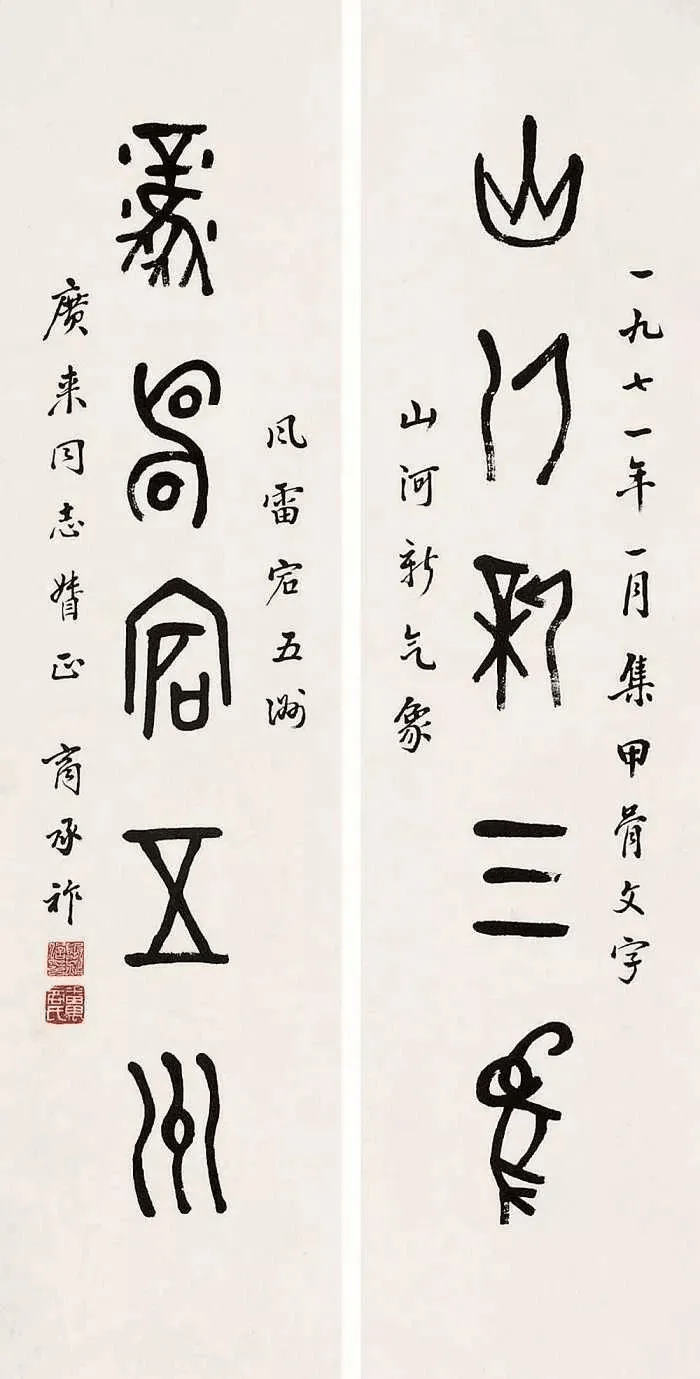 一九七一年一月集甲骨文字
山河新气象
山河新气象
风雷宕五洲
风雷宕五洲
廣来同志督正 商承祚